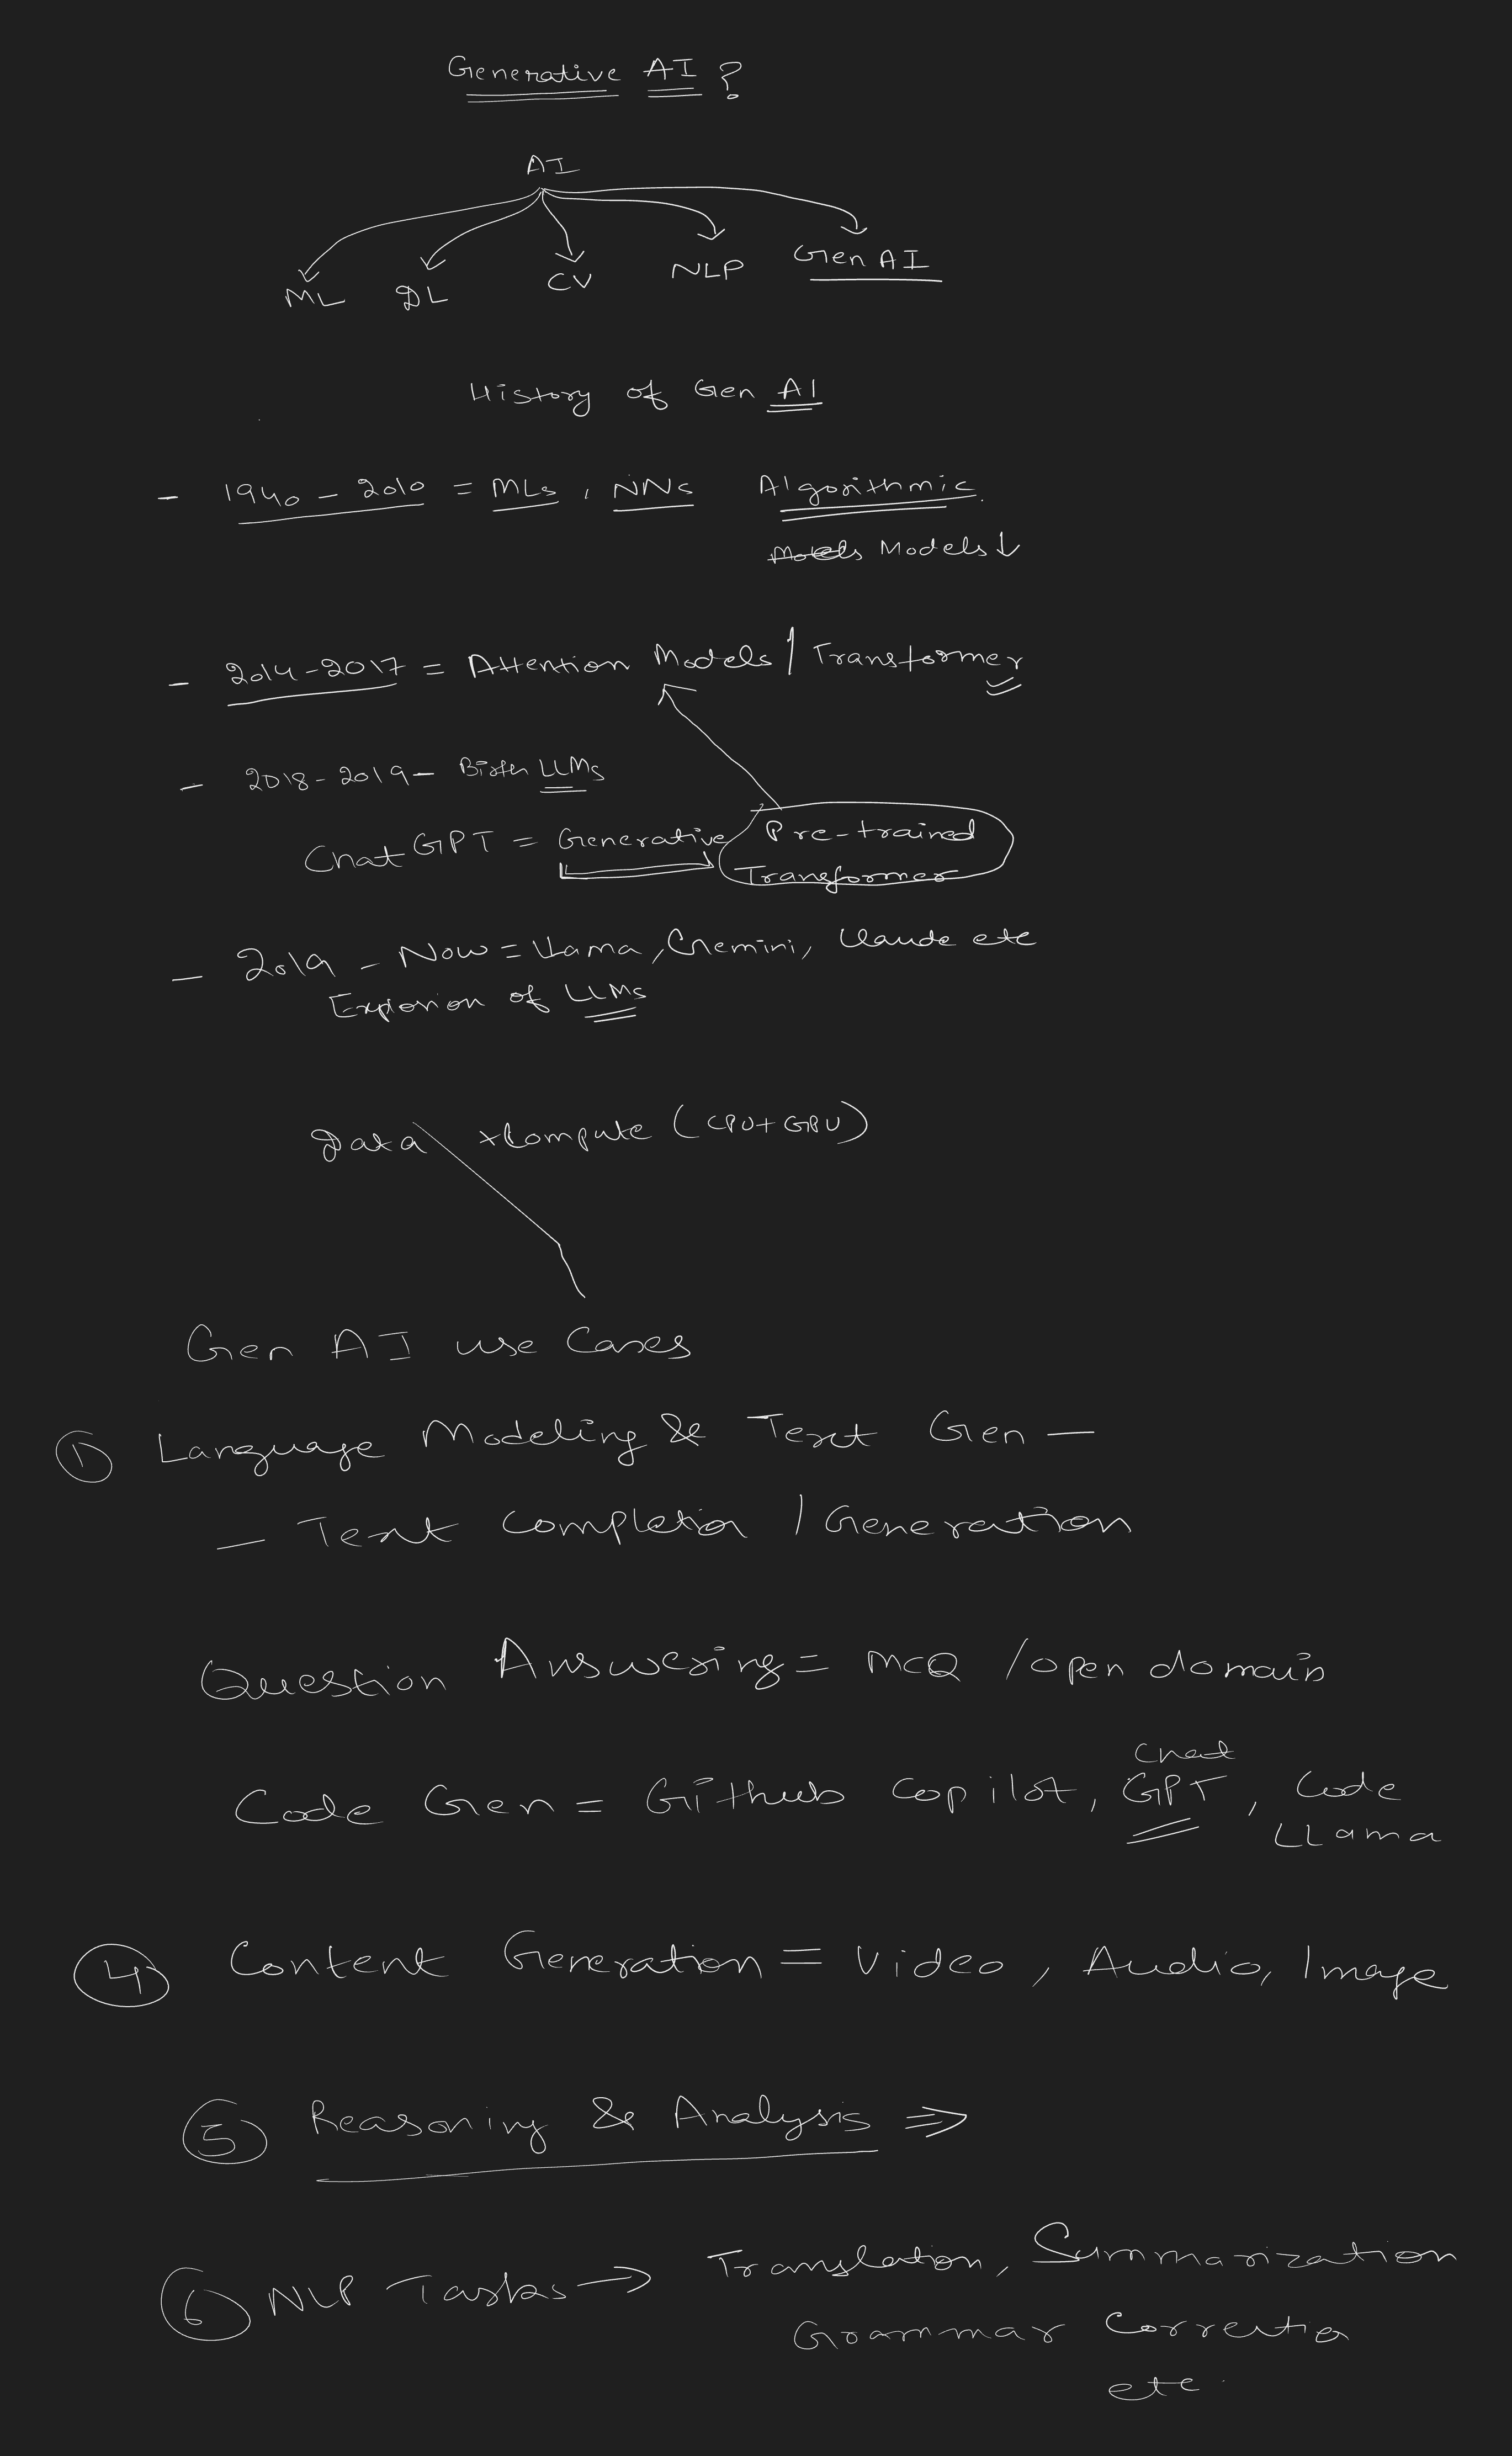 Generative AI ?
AI
ML DL CV NLP Gen AI
History of Gen AI
- 1940 - 2010 = MLs, NNs Algorithmic.
Models Models ↓
- 2014-2017 = Attention Models / Transformer
- 2018-2019 - Birth LLMs
ChatGPT = Generative Pre-trained
Transformer
- 2019 - Now = Llama, Gemini, Claude etc
Explosion of LLMs
Data + Compute (CPU + GPU)
Gen AI use Cases
① Language Modeling & Text Gen -
- Text Completion / Generation
Question Answering = MCQ / open domain
Code Gen = Github Copilot, Chat GPT, Code
LLama
④ Content Generation = Video, Audio, Image
⑤ Reasoning & Analysis ⇒
⑥ NLP Tasks → Translation, Summarization
Grammar Correction
etc.